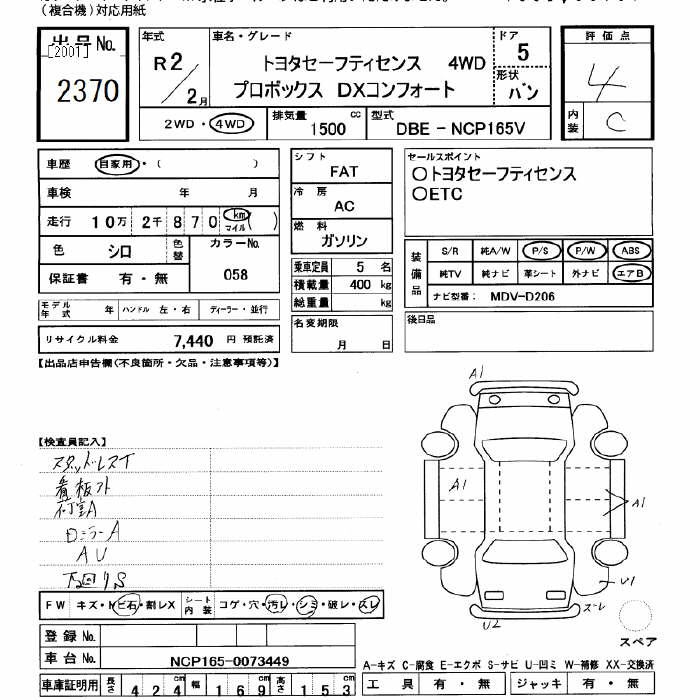 (複合機)対応用紙
出品No.
[2001]
2370
年式
R2／2月
車名・グレード
トヨタセーフティセンス 4WD
プロボックス DXコンフォート
ドア
5
形状
バン
評価点
4
内装
C
2WD・4WD
排気量 1500 cc
型式 DBE-NCP165V
車歴 自家用・( )
車検 年 月
走行 10万 2千 870 km マイル ( )
色 シロ 色替 カラーNo. 058
保証書 有・無
モデル年式 年 ハンドル 左・右 ディーラー・並行
リサイクル料金 7,440 円 預託済
シフト
FAT
冷房
AC
燃料
ガソリン
乗車定員 5 名
積載量 400 kg
総重量 kg
名変期限
月 日
セールスポイント
○トヨタセーフティセンス
○ETC
装備品
S/R 純A/W P/S P/W ABS
純TV 純ナビ 革シート 外ナビ エアB
ナビ型番: MDV-D206
後日品
【出品店申告欄(不良箇所・欠品・注意事項等)】
【検査員記入】
スタッドレスT
看板アト
A
ローラーA
AU
S
FW キズ・ト ビ石・割レX
シート内装 コゲ・穴・汚レ・シミ・破レ・スレ
登録No.
車台No. NCP165-0073449
車庫証明用 長さ 424 cm 幅 169 cm 高さ 153 cm
A1
A1
A1
U1
スーレ
U2
スペア
A-キズ C-腐食 E-エクボ S-サビ U-凹ミ W-補修 XX-交換済
工具 有・無 ジャッキ 有・無